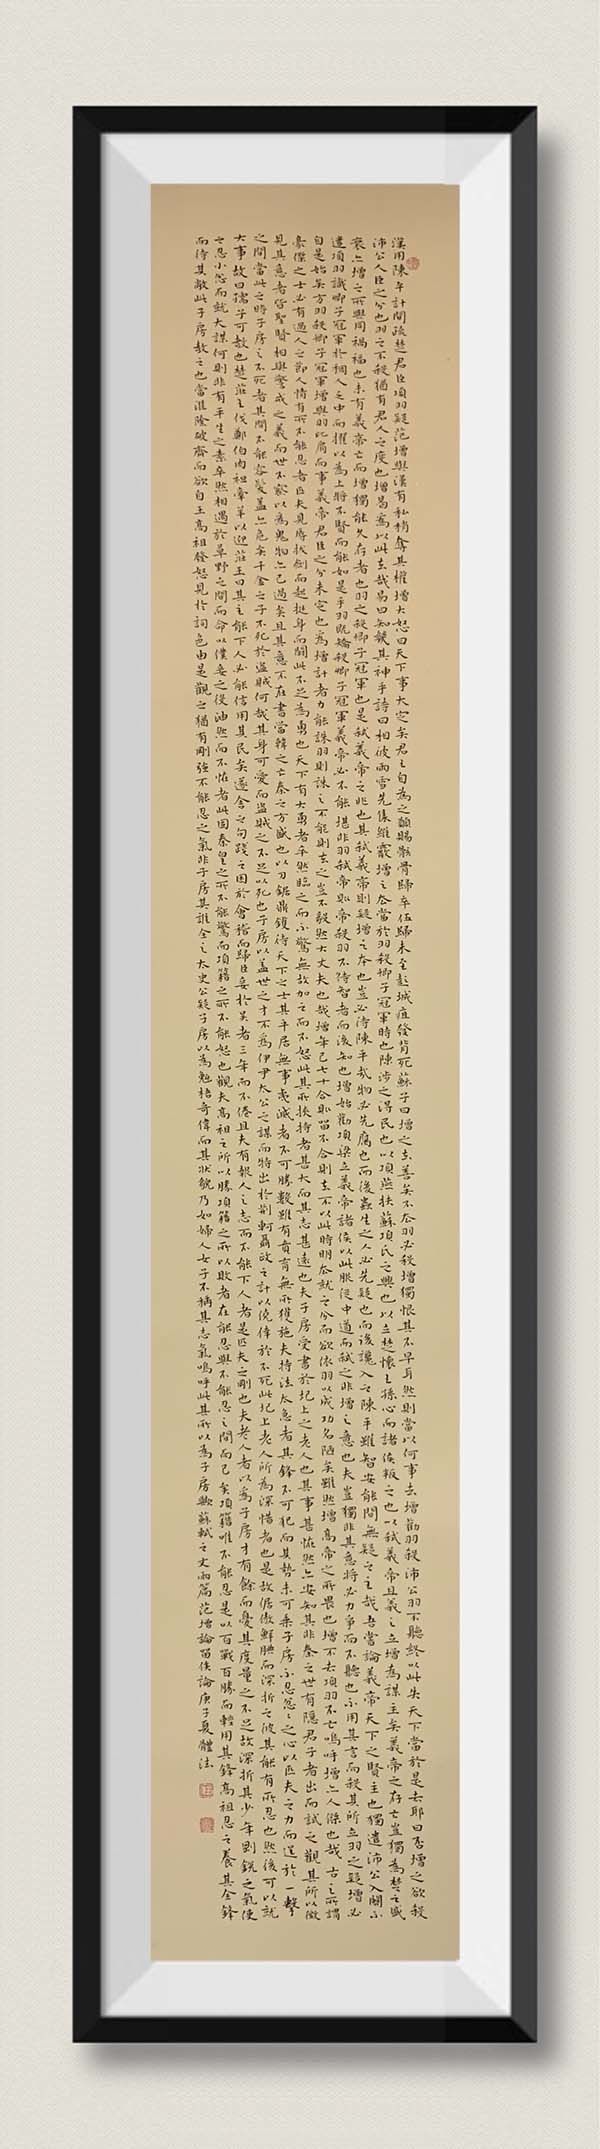 漢用陳平計間疏楚君臣項羽疑范增與漢有私稍奪其權增大怒曰天下事大定矣君王自為之願賜骸骨歸卒伍歸未至彭城疽發背死蘇子曰增之去善矣不去羽必殺增獨恨其不早耳然則當以何事去增勸羽殺沛公羽不聽終以此失天下當於是去耶曰否增之欲殺
沛公人臣之分也羽之不殺猶有君人之度也增曷為以此去哉易曰知幾其神乎詩曰相彼雨雪先集維霰增之去當於羽殺卿子冠軍時也陳涉之得民也以項燕扶蘇項氏之興也以立楚懷王孫心而諸侯叛之也以弒義帝且義之立增為謀主矣義帝之存亡豈獨為楚之盛
衰亦增之所與同禍福也未有義帝亡而增獨能久存者也羽之殺卿子冠軍也是弒義帝之兆也其弒義帝則疑增之本也豈必待陳平哉物必先腐也而後蟲生之人必先疑也而後讒入之陳平雖智安能間無疑之主哉吾嘗論義帝天下之賢主也獨遣沛公入關不
遣項羽識卿子冠軍於稠人之中而擢以為上將不賢而能如是乎羽既矯殺卿子冠軍義帝必不能堪非羽弒帝則帝殺羽不待智者而後知也增始勸項梁立義帝諸侯以此服從中道而弒之非增之意也夫豈獨非其意將必力爭而不聽也不用其言而殺其所立羽之疑增必
自是始矣方羽殺卿子冠軍增與羽比肩而事義帝君臣之分未定也為增計者力能誅羽則誅之不能則去之豈不毅然大丈夫也哉增年已七十合則留不合則去不以此時明去就之分而欲依羽以成功名陋矣雖然增高帝之所畏也增不去項羽不亡嗚呼增亦人傑也哉 古之所謂
豪傑之士必有過人之節人情有所不能忍者匹夫見辱拔劍而起挺身而鬪此不足為勇也天下有大勇者卒然臨之而不驚無故加之而不怒此其所挾持者甚大而其志甚遠也夫子房受書於圯上之老人也其事甚怪然亦安知其非秦之世有隱君子者出而試之觀其所以微
見其意者皆聖賢相與警戒之義而世不察以為鬼物亦已過矣且其意不在書當韓之亡秦之方盛也以刀鋸鼎鑊待天下之士其平居無事夷滅者不可勝數雖有賁育無所獲施夫持法太急者其鋒不可犯而其勢未可乘子房不忍忿忿之心以匹夫之力而逞於一擊
之間當此之時子房之不死者其間不能容髮蓋亦危矣千金之子不死於盜賊何哉其身可愛而盜賊之不足以死也子房以蓋世之才不為伊尹太公之謀而特出於荊軻聶政之計以僥倖於不死此圯上老人所為深惜者也是故倨傲鮮腆而深折之彼其能有所忍也然後可以就
大事故曰孺子可教也楚莊王伐鄭伯肉袒牽羊以迎莊王曰其主能下人必能信用其民矣遂舍之句踐之困於會稽而歸臣妾於吳者三年而不倦且夫有報人之志而不能下人者是匹夫之剛也夫老人者以為子房才有餘而憂其度量之不足故深折其少年剛銳之氣使
之忍小忿而就大謀何則非有平生之素卒然相遇於草野之間而命以僕妾之役油然而不怪者此固秦皇之所不能驚而項籍之所不能怒也觀夫高祖之所以勝項籍之所以敗者在能忍與不能忍之間而已矣項籍唯不能忍是以百戰百勝而輕用其鋒高祖忍之養其全鋒
而待其敝此子房教之也當淮陰破齊而欲自王高祖發怒見於詞色由是觀之猶有剛強不能忍之氣非子房其誰全之太史公疑子房以為魁梧奇偉而其狀貌乃如婦人女子不稱其志氣嗚呼此其所以為子房歟蘇軾之文兩篇范增論留侯論庚子夏體法